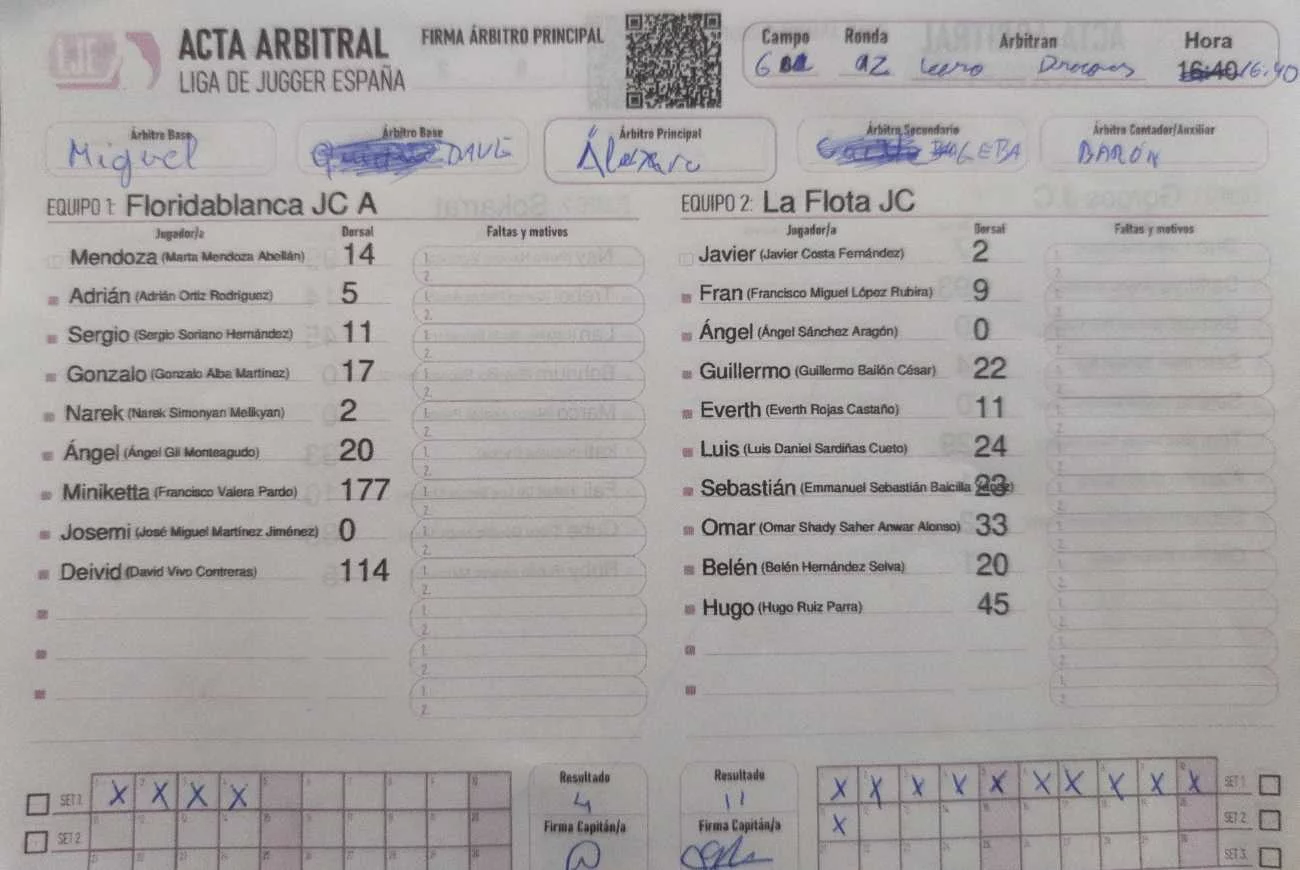 LJE
ACTA ARBITRAL
LIGA DE JUGGER ESPAÑA
FIRMA ÁRBITRO PRINCIPAL
Campo Ronda Arbitran Hora
16:40 16:40
Árbitro Base Árbitro Base Árbitro Principal Árbitro Secundario Árbitro Contador/Auxiliar
Miguel DAVE BARÓN
EQUIPO 1: Floridablanca JC A
Jugador/a Dorsal Faltas y motivos
Mendoza (Marta Mendoza Abellán) 14 1.
2.
Adrián (Adrián Ortiz Rodríguez) 5 1.
2.
Sergio (Sergio Soriano Hernández) 11 1.
2.
Gonzalo (Gonzalo Alba Martínez) 17 1.
2.
Narek (Narek Simonyan Melikyan) 2 1.
2.
Ángel (Ángel Gil Monteagudo) 20 1.
2.
Miniketta (Francisco Valera Pardo) 177 1.
2.
Josemi (José Miguel Martínez Jiménez) 0 1.
2.
Deivid (David Vivo Contreras) 114 1.
2.
1.
2.
1.
2.
1.
2.
EQUIPO 2: La Flota JC
Jugador/a Dorsal Faltas y motivos
Javier (Javier Costa Fernández) 2 1.
2.
Fran (Francisco Miguel López Rubira) 9 1.
2.
Ángel (Ángel Sánchez Aragón) 0 1.
2.
Guillermo (Guillermo Bailón César) 22 1.
2.
Everth (Everth Rojas Castaño) 11 1.
2.
Luis (Luis Daniel Sardiñas Cueto) 24 1.
2.
Sebastián (Emmanuel Sebastián Balcilla 23 1.
2.
Omar (Omar Shady Saher Anwar Alonso) 33 1.
2.
Belén (Belén Hernández Selva) 20 1.
2.
Hugo (Hugo Ruiz Parra) 45 1.
2.
1.
2.
1.
2.
SET 1 X X X X
SET 2
Resultado
4
Firma Capitán/a
Resultado
11
Firma Capitán/a
X X X X X X X X X X SET 1
X SET 2
SET 3